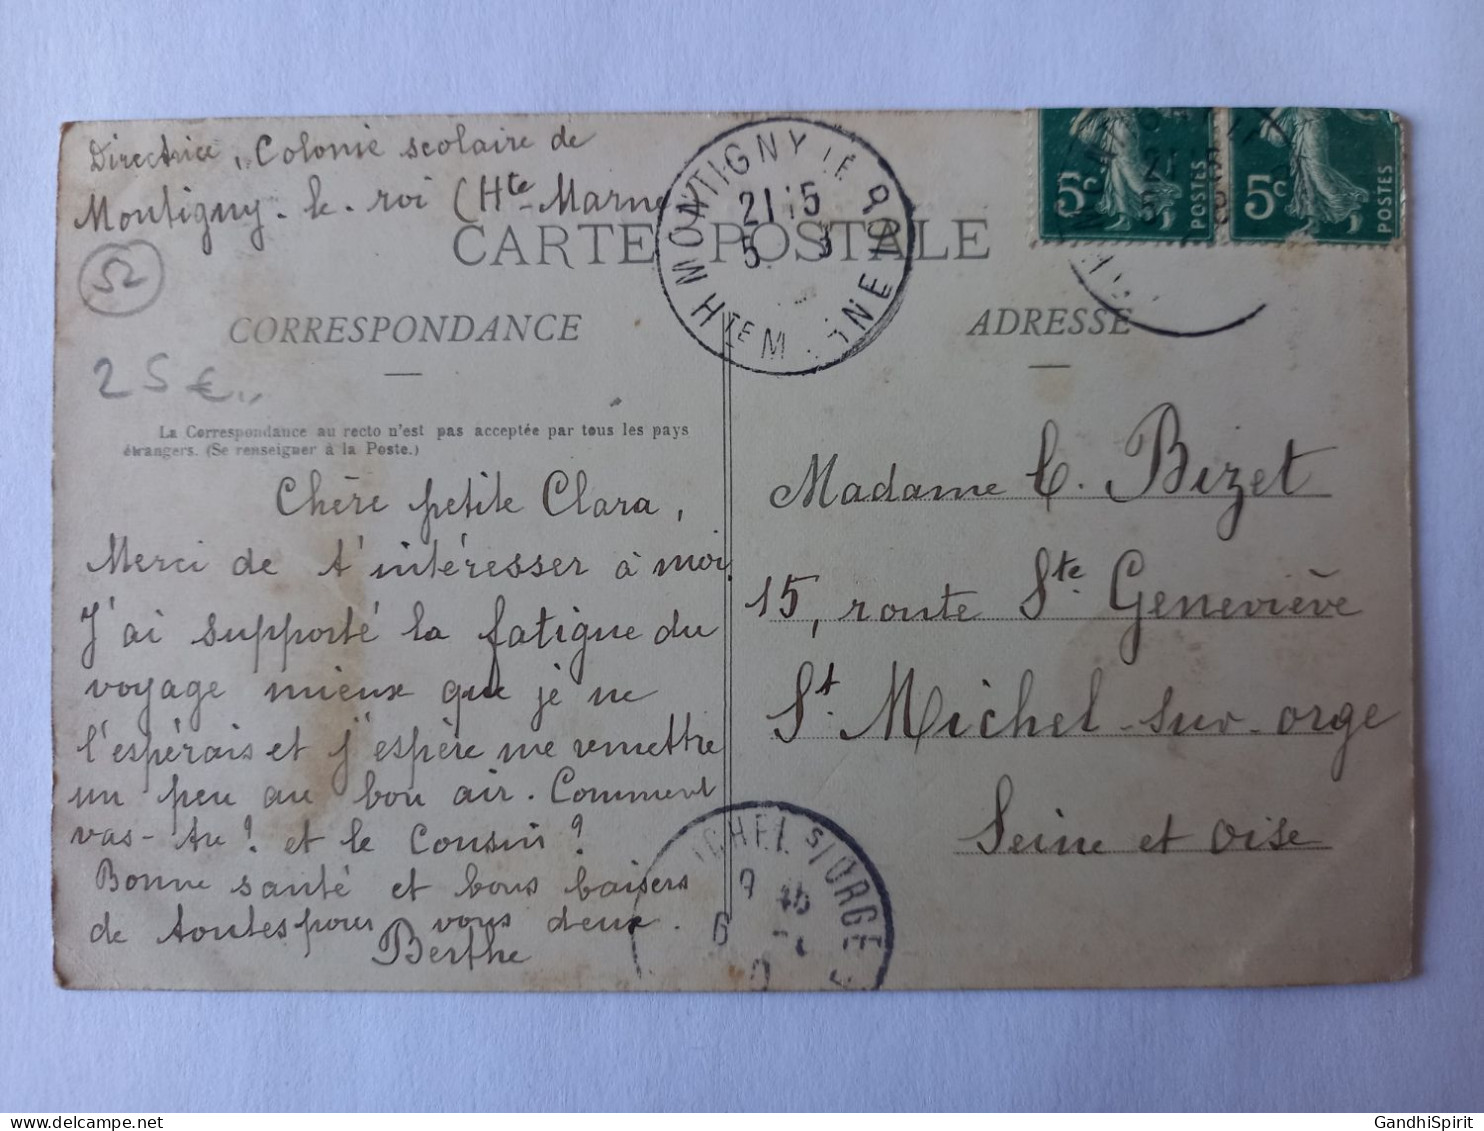 Directrice, Colonie scolaire de
Montigny-le-roi (Hte-Marne
52
25€
CARTE POSTALE
MONTIGNY LE ROI
21 15
5
HTE M NE
5c POSTES
5c POSTES
CORRESPONDANCE
La Correspondance au recto n'est pas acceptée par tous les pays
étrangers. (Se renseigner à la Poste.)
Chère petite Clara,
Merci de t'intéresser à moi.
J'ai supporté la fatigue du
voyage mieux que je ne
l'espérais et j'espère me remettre
un peu au bon air. Comment
vas-tu? et le Cousin?
Bonne santé et bons baisers
de toutes pour vous deux.
Berthe
ADRESSE
Madame C. Bizet
15, route Ste Geneviève
St. Michel-sur-orge
Seine et oise
ICHEL S/ORGE
6
GandhiSpirit